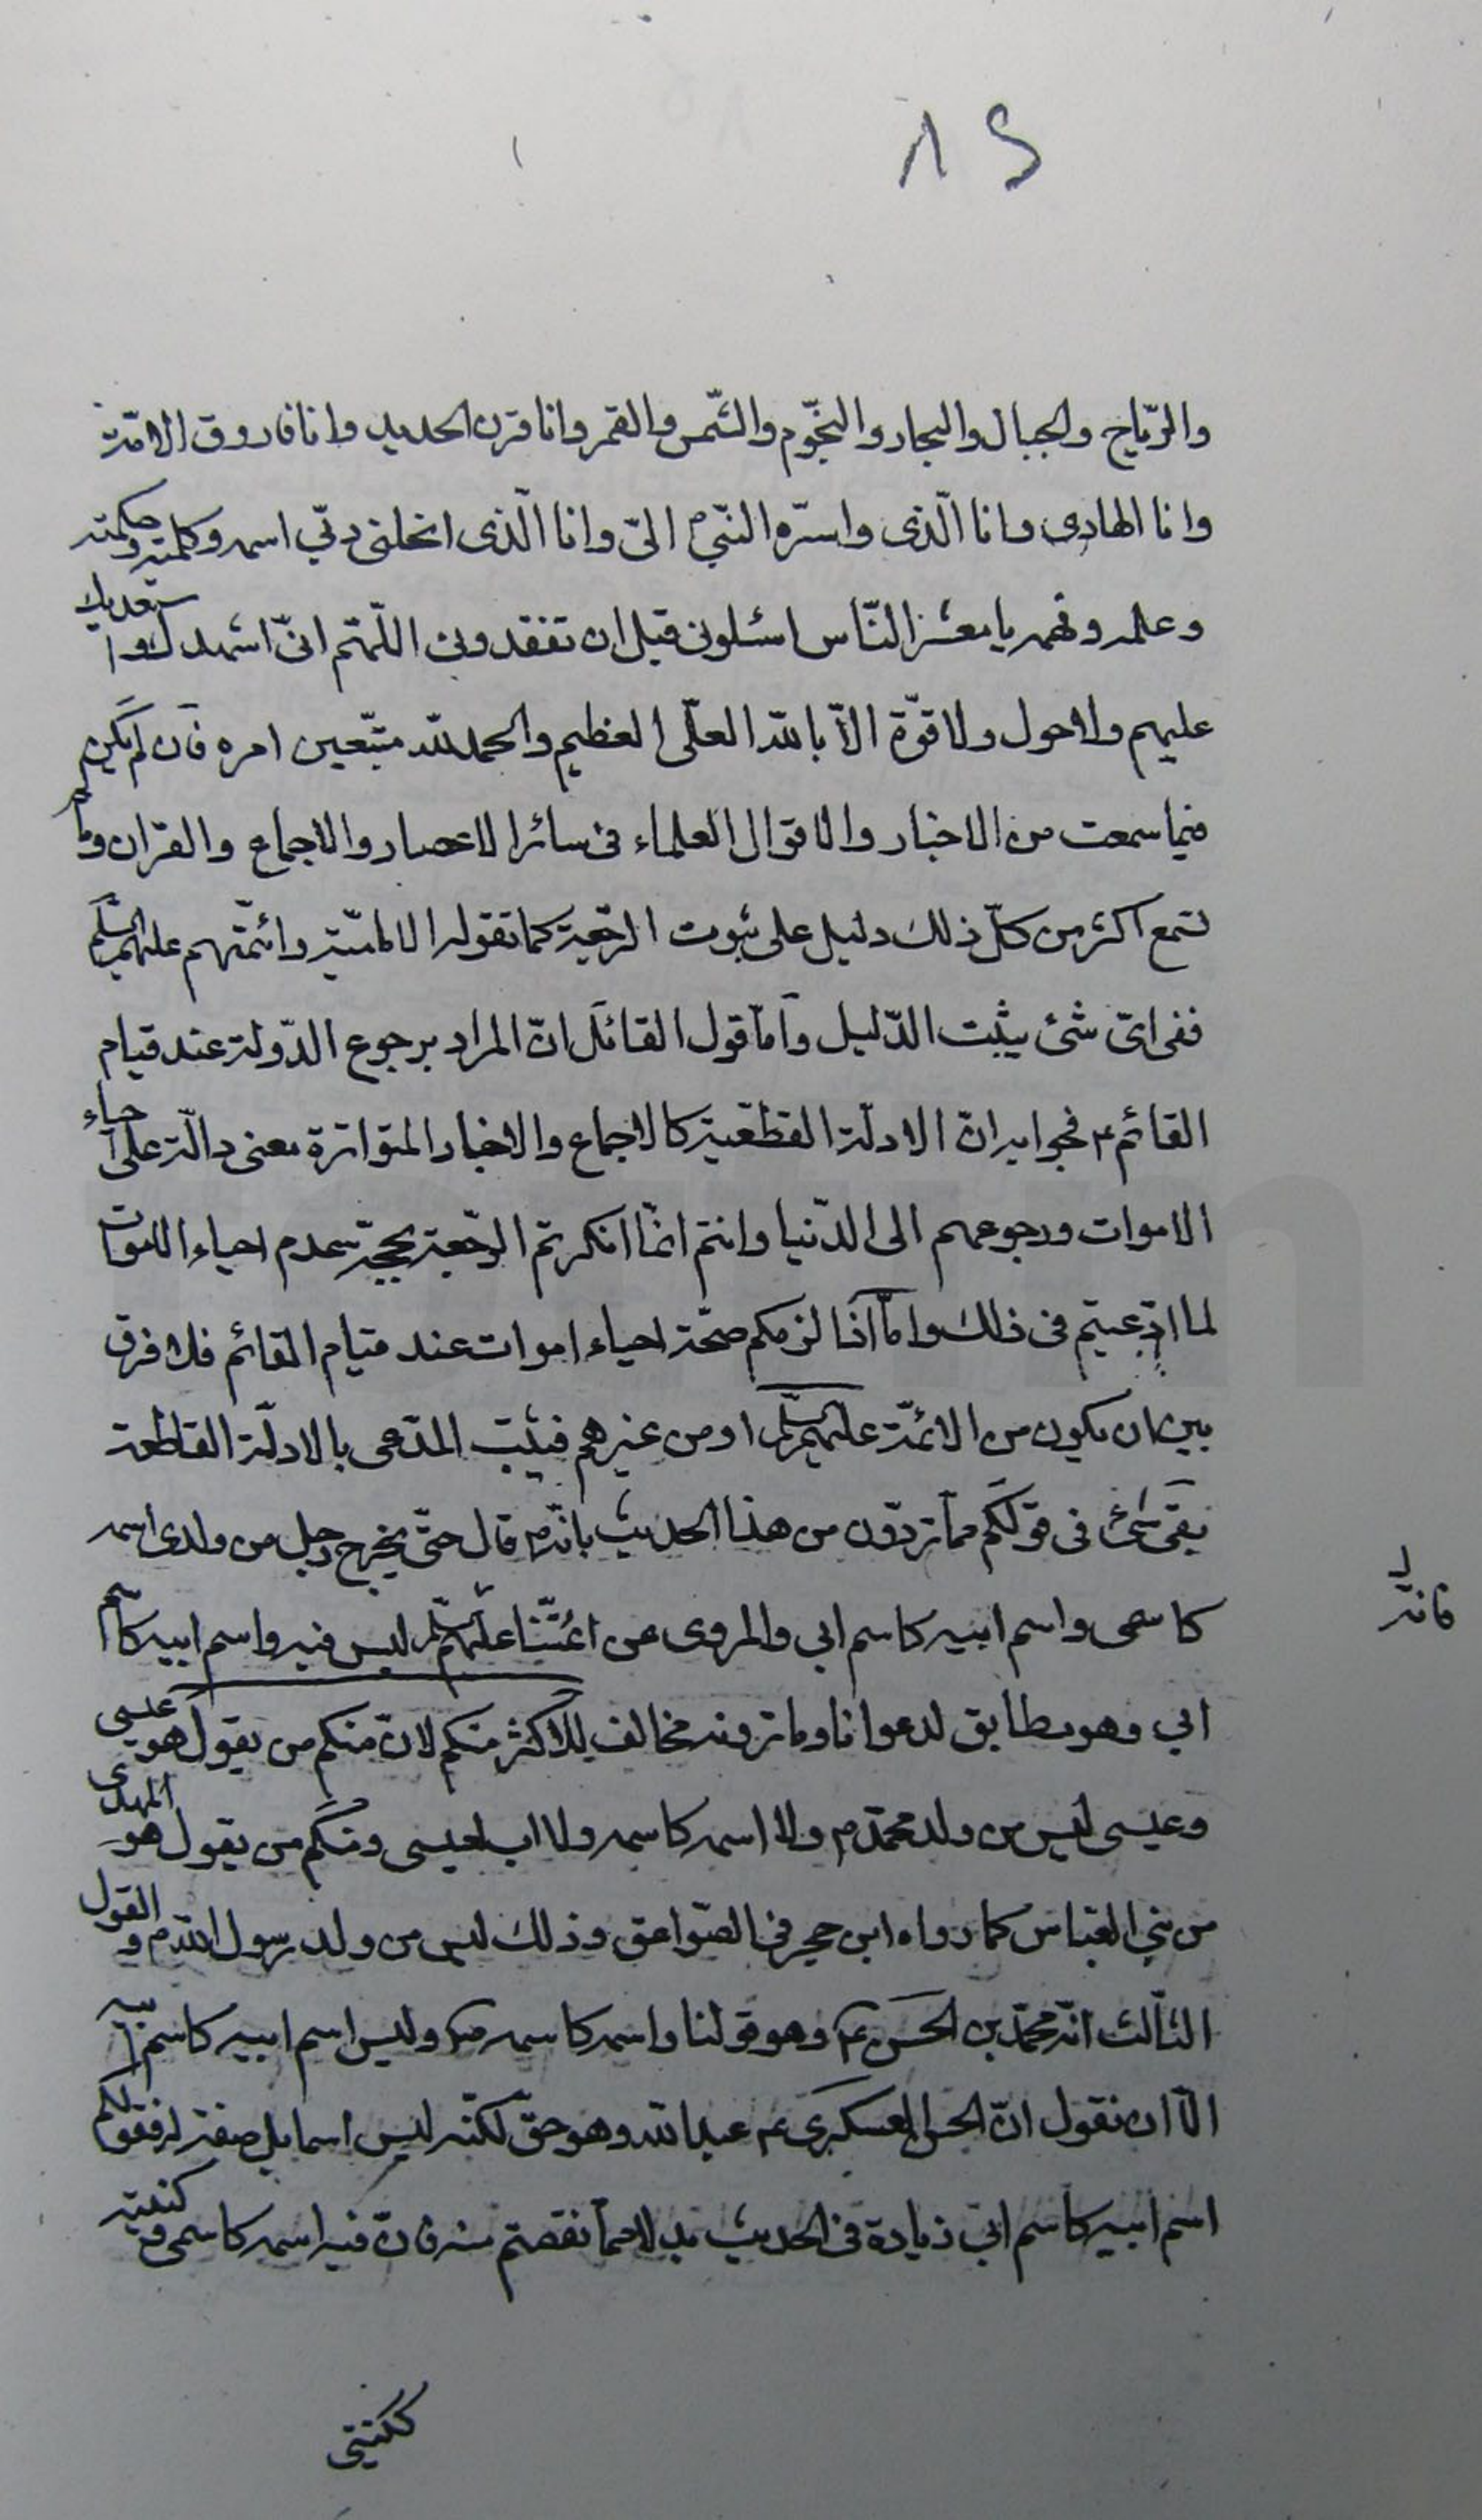 ٨٢
والرّياح والجبال والبحار والنّجوم والشّمس والقمر وانا قرن الحديد وانا فاروق الامّة
وانا الهادى وانا الّذى واسرّه النّبىّ الىّ وانا الّذى انحلنى ربّي اسمه وكلمته وحكمته
وعلمه وفهمه يا معشر النّاس اسئلونى قبل ان تفقدونى اللّهمّ انّى اشهدك واستعديك
عليهم ولا حول ولا قوّة الّا باللّه العلّى العظيم والحمد للّه متّبعين امره فان لم يكن
فيما سمعت من الاخبار والاقوال العلماء فى سائر الاعصار والاجماع والقران وما لم
تسمع اكثر من كلّ ذلك دليل على ثبوت الرّجعة كما تقوله الاماميّة وائمّتهم عليهم السّلم
ففى اىّ شئ يثبت الدّليل وامّا قول القائل انّ المراد برجوع الدّولة عند قيام
القائم ع فجوابه انّ الادلّة القطعيّة كالاجماع والاخبار المتواترة معنى دالّة على احياء
الاموات ورجوعهم الى الدّنيا وانتم انّما انكرتم الرّجعة بحجّة عدم احياء الاموات
لما ادّعيتم فى ذلك وامّا اذا لزمكم صحّة احياء اموات عند قيام القائم فلا فرق
بين ان يكون من الائمّة عليهم السّلم او من غيرهم فيثبت المدّعى بالادلّة القاطعة
بقى شئ فى قولكم ممّا تردّون من هذا الحديث بانّه ص قال حتّى يخرج رجل من ولدى اسمه
كاسمى واسم ابيه كاسم ابى والمروى عن ائمّتنا عليهم السّلم ليس فيه واسم ابيه كاسم
فانّه
ابي وهو مطابق لدعوانا وما تروونه مخالف للاكثر منكم لانّ منكم من يقول هو عيسى
وعيسى ليس من ولد محمّد ص ولا اسمه كاسمه ولا اب لعيسى ومنكم من يقول هو المهدى
من بنى العبّاس كما رواه ابن حجر فى الصّواعق وذلك ليس من ولد رسول اللّه ص والقول
الثّالث انّه محمّد بن الحسن ع وهو قولنا واسمه كاسمه ص وليس اسم ابيه كاسم ابيه
الّا ان نقول انّ الحسن العسكرى ع عبد اللّه وهو حقّ لكنّه ليس اسما بل صفة له فقولكم
اسم ابيه كاسم ابى زيادة فى الحديث بدلا ممّا نقصتم منه فانّ فيه اسمه كاسمى وكنيته
ككنيتى